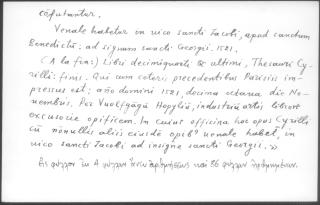 cōfutantur.
Venale habetur in vico sancti Jacobi, apud sanctum
Benedictū: ad signum sancti Georgii. 1521.
(A la fin:) Libri decimiquarti & ultimi, Thesauri Cy-
rilli: finis. Qui cum ceteris precedentibus Parisiis im-
pressus est: año domini 1521. decima octava die No-
uembris. Per Vuolfgāgū Hopyliū, industriū artis librorū
excusorie opificem. In cuius officina hoc opus Cyrilli
cū nonullis aliis eiusdē opib9 uenale habet, in
vico sancti Jacobi ad insigne sancti Georgii.